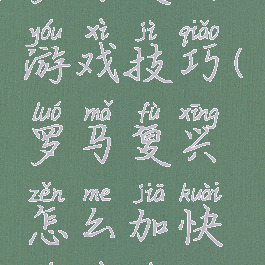 yóu xì jì qiǎo
游戏技巧(
luó mǎ fù xīng
罗马复兴
zěn me jiā kuài
怎么加快